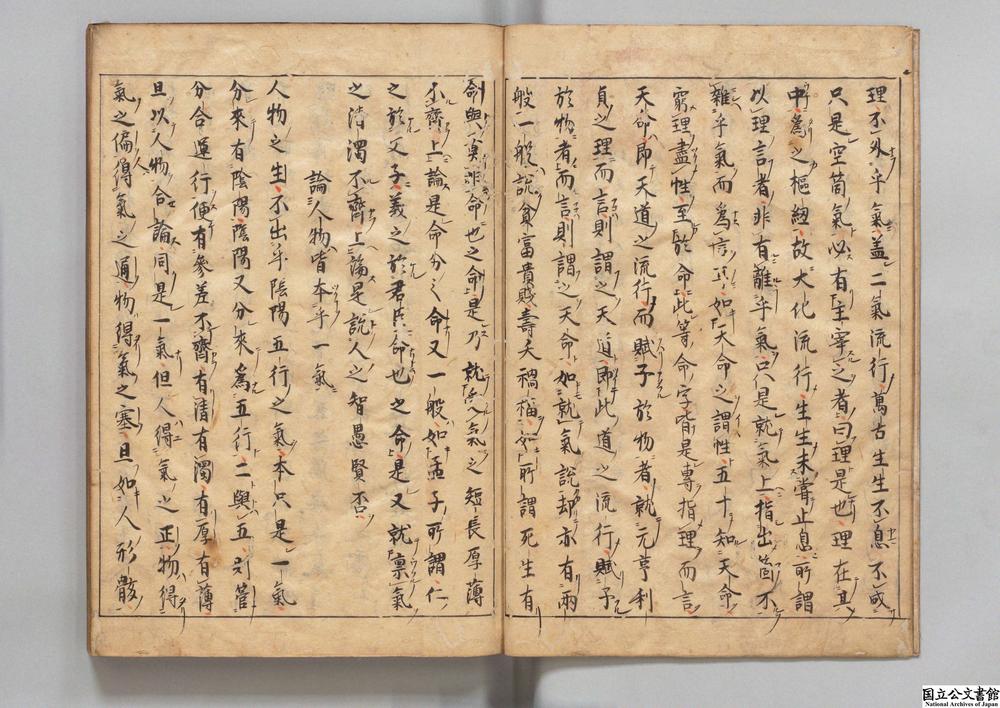 理不外乎氣蓋二氣流行萬古生生不息不成
只是空箇氣必有主宰之者曰理是也理在其
中為之樞紐故大化流行生生未嘗止息所謂
以理言者非有離乎氣只是就氣上指出箇不
雜乎氣而為言耳如天命之謂性五十知天命
窮理盡性至於命此等命字皆是專指理而言
天命即天道之流行而賦予於物者就元亨利
貞之理而言則謂之天道即此道之流行賦予
於物者而言則謂之天命如就氣說却亦有兩
般一般說貧富貴賤壽夭禍福如所謂死生有
命與莫非命也之命是乃就受氣之短長厚薄
不齊上論是命分之命又一般如孟子所謂仁
之於父子義之於君臣命也之命是又就禀氣
之清濁不齊上論是說人之智愚賢否
論人物皆本乎一氣
人物之生不出乎陰陽五行之氣本只是一氣
分來有陰陽陰陽又分來為五行二與五則管
分合運行便有參差不齊有清有濁有厚有薄
且以人物合論同是一氣但人得氣之正物得
氣之偏人得氣之通物得氣之塞且如人形骸
国立公文書館
National Archives of Japan